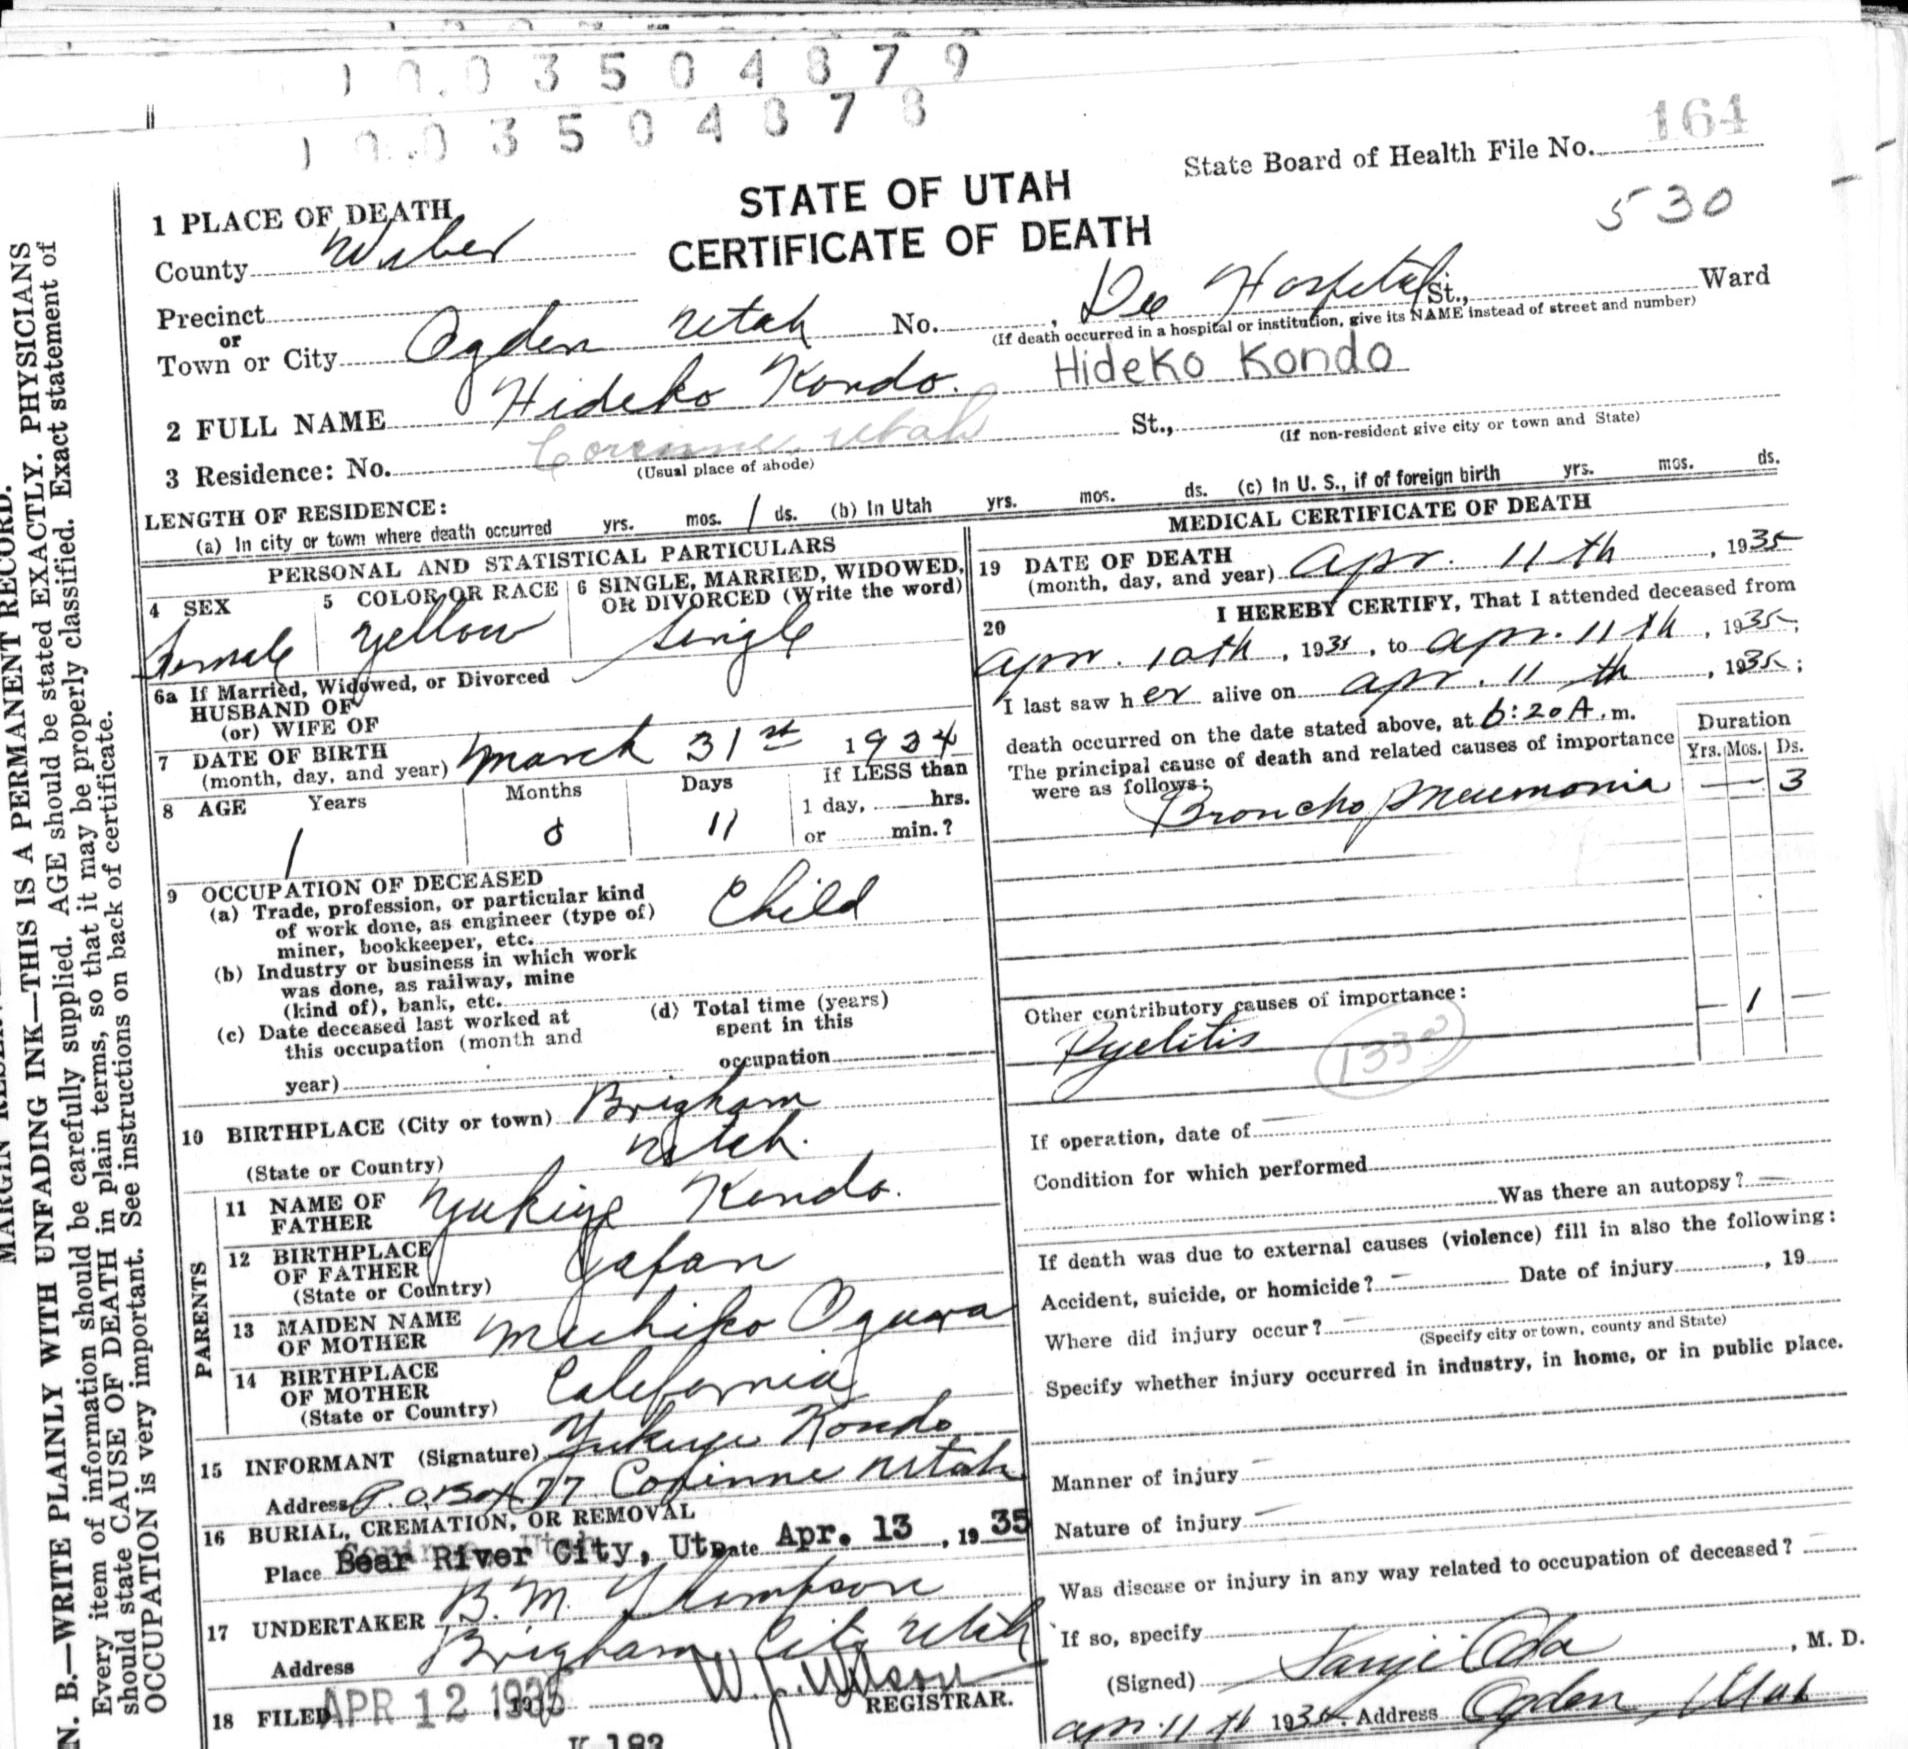 1 0 0 3 5 0 4 8 7 9
1 0 0 3 5 0 4 8 7 8
State Board of Health File No. 164
530
STATE OF UTAH
CERTIFICATE OF DEATH
1 PLACE OF DEATH
County Weber
Precinct
or
Town or City Ogden Utah No. , Dee Hospital St., Ward
(If death occurred in a hospital or institution, give its NAME instead of street and number)
2 FULL NAME Hideko Kondo. Hideko Kondo
3 Residence: No. Corinne, Utah St.,
(Usual place of abode) (If non-resident give city or town and State)
LENGTH OF RESIDENCE:
(a) In city or town where death occurred yrs. mos. 1 ds. (b) In Utah yrs. mos. ds. (c) In U. S., if of foreign birth yrs. mos. ds.
PERSONAL AND STATISTICAL PARTICULARS
4 SEX
Female
5 COLOR OR RACE
Yellow
6 SINGLE, MARRIED, WIDOWED,
OR DIVORCED (Write the word)
Single
6a If Married, Widowed, or Divorced
HUSBAND OF
(or) WIFE OF
7 DATE OF BIRTH
(month, day, and year) March 31st 1934
8 AGE Years Months Days If LESS than
1 day, hrs.
or min.?
1 0 11
9 OCCUPATION OF DECEASED
(a) Trade, profession, or particular kind
of work done, as engineer (type of)
miner, bookkeeper, etc. Child
(b) Industry or business in which work
was done, as railway, mine
(kind of), bank, etc.
(c) Date deceased last worked at
this occupation (month and
year)
(d) Total time (years)
spent in this
occupation
10 BIRTHPLACE (City or town) Brigham
(State or Country) Utah.
PARENTS
11 NAME OF
FATHER Yukiye Kondo.
12 BIRTHPLACE
OF FATHER
(State or Country) Japan
13 MAIDEN NAME
OF MOTHER Michiko Ogura
14 BIRTHPLACE
OF MOTHER
(State or Country) California
15 INFORMANT (Signature) Yukiye Kondo
Address P.O. Box 77 Corinne Utah
16 BURIAL, CREMATION, OR REMOVAL
Place Bear River City, Ut Date Apr. 13, 1935
17 UNDERTAKER B. M. Thompson
Address Brigham City Utah
18 FILED APR 12 1935 W. J. Wilson
REGISTRAR.
K 183
MEDICAL CERTIFICATE OF DEATH
19 DATE OF DEATH
(month, day, and year) Apr. 11th, 1935
20 I HEREBY CERTIFY, That I attended deceased from
Apr. 10th, 1935, to Apr. 11th, 1935;
I last saw her alive on Apr. 11th, 1935;
death occurred on the date stated above, at 6:20 A. m.
The principal cause of death and related causes of importance
were as follows:
Duration
Yrs. Mos. Ds.
Broncho Pneumonia — 3
Other contributory causes of importance:
Pyelitis — 1 —
133
If operation, date of —
Condition for which performed
Was there an autopsy? —
If death was due to external causes (violence) fill in also the following:
Accident, suicide, or homicide? — Date of injury , 19
Where did injury occur? —
(Specify city or town, county and State)
Specify whether injury occurred in industry, in home, or in public place.
Manner of injury —
Nature of injury —
Was disease or injury in any way related to occupation of deceased?
If so, specify
(Signed) Sanji Oda, M. D.
Apr. 11th 1935. Address Ogden, Utah
N. B.—WRITE PLAINLY WITH UNFADING INK—THIS IS A PERMANENT RECORD.
Every item of information should be carefully supplied. AGE should be stated EXACTLY. PHYSICIANS
should state CAUSE OF DEATH in plain terms, so that it may be properly classified. Exact statement of
OCCUPATION is very important. See instructions on back of certificate.